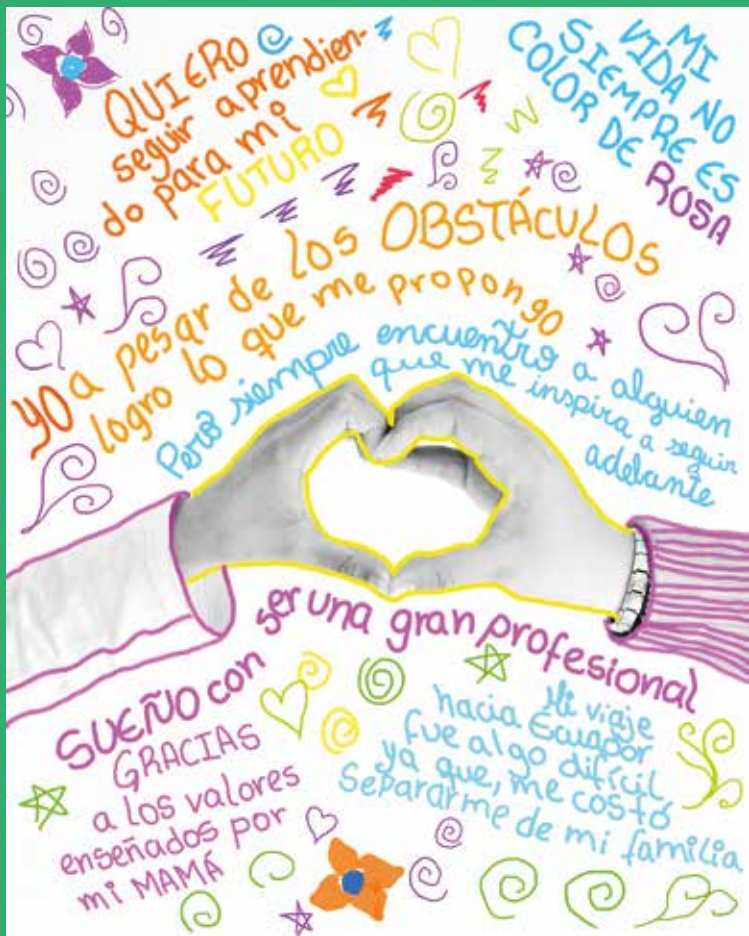 QUIERO
seguir aprendien-
do para mi
FUTURO
MI
VIDA NO
SIEMPRE ES
COLOR DE ROSA
yo a pesar de los OBSTÁCULOS
logro lo que me propongo
Pero siempre encuentro a alguien
que me inspira a seguir
adelante
SUEÑO con ser una gran profesional
GRACIAS
a los valores
enseñados por
mi MAMÁ
Mi viaje
hacia Ecuador
fue algo difícil
ya que, me costó
separarme de mi familia